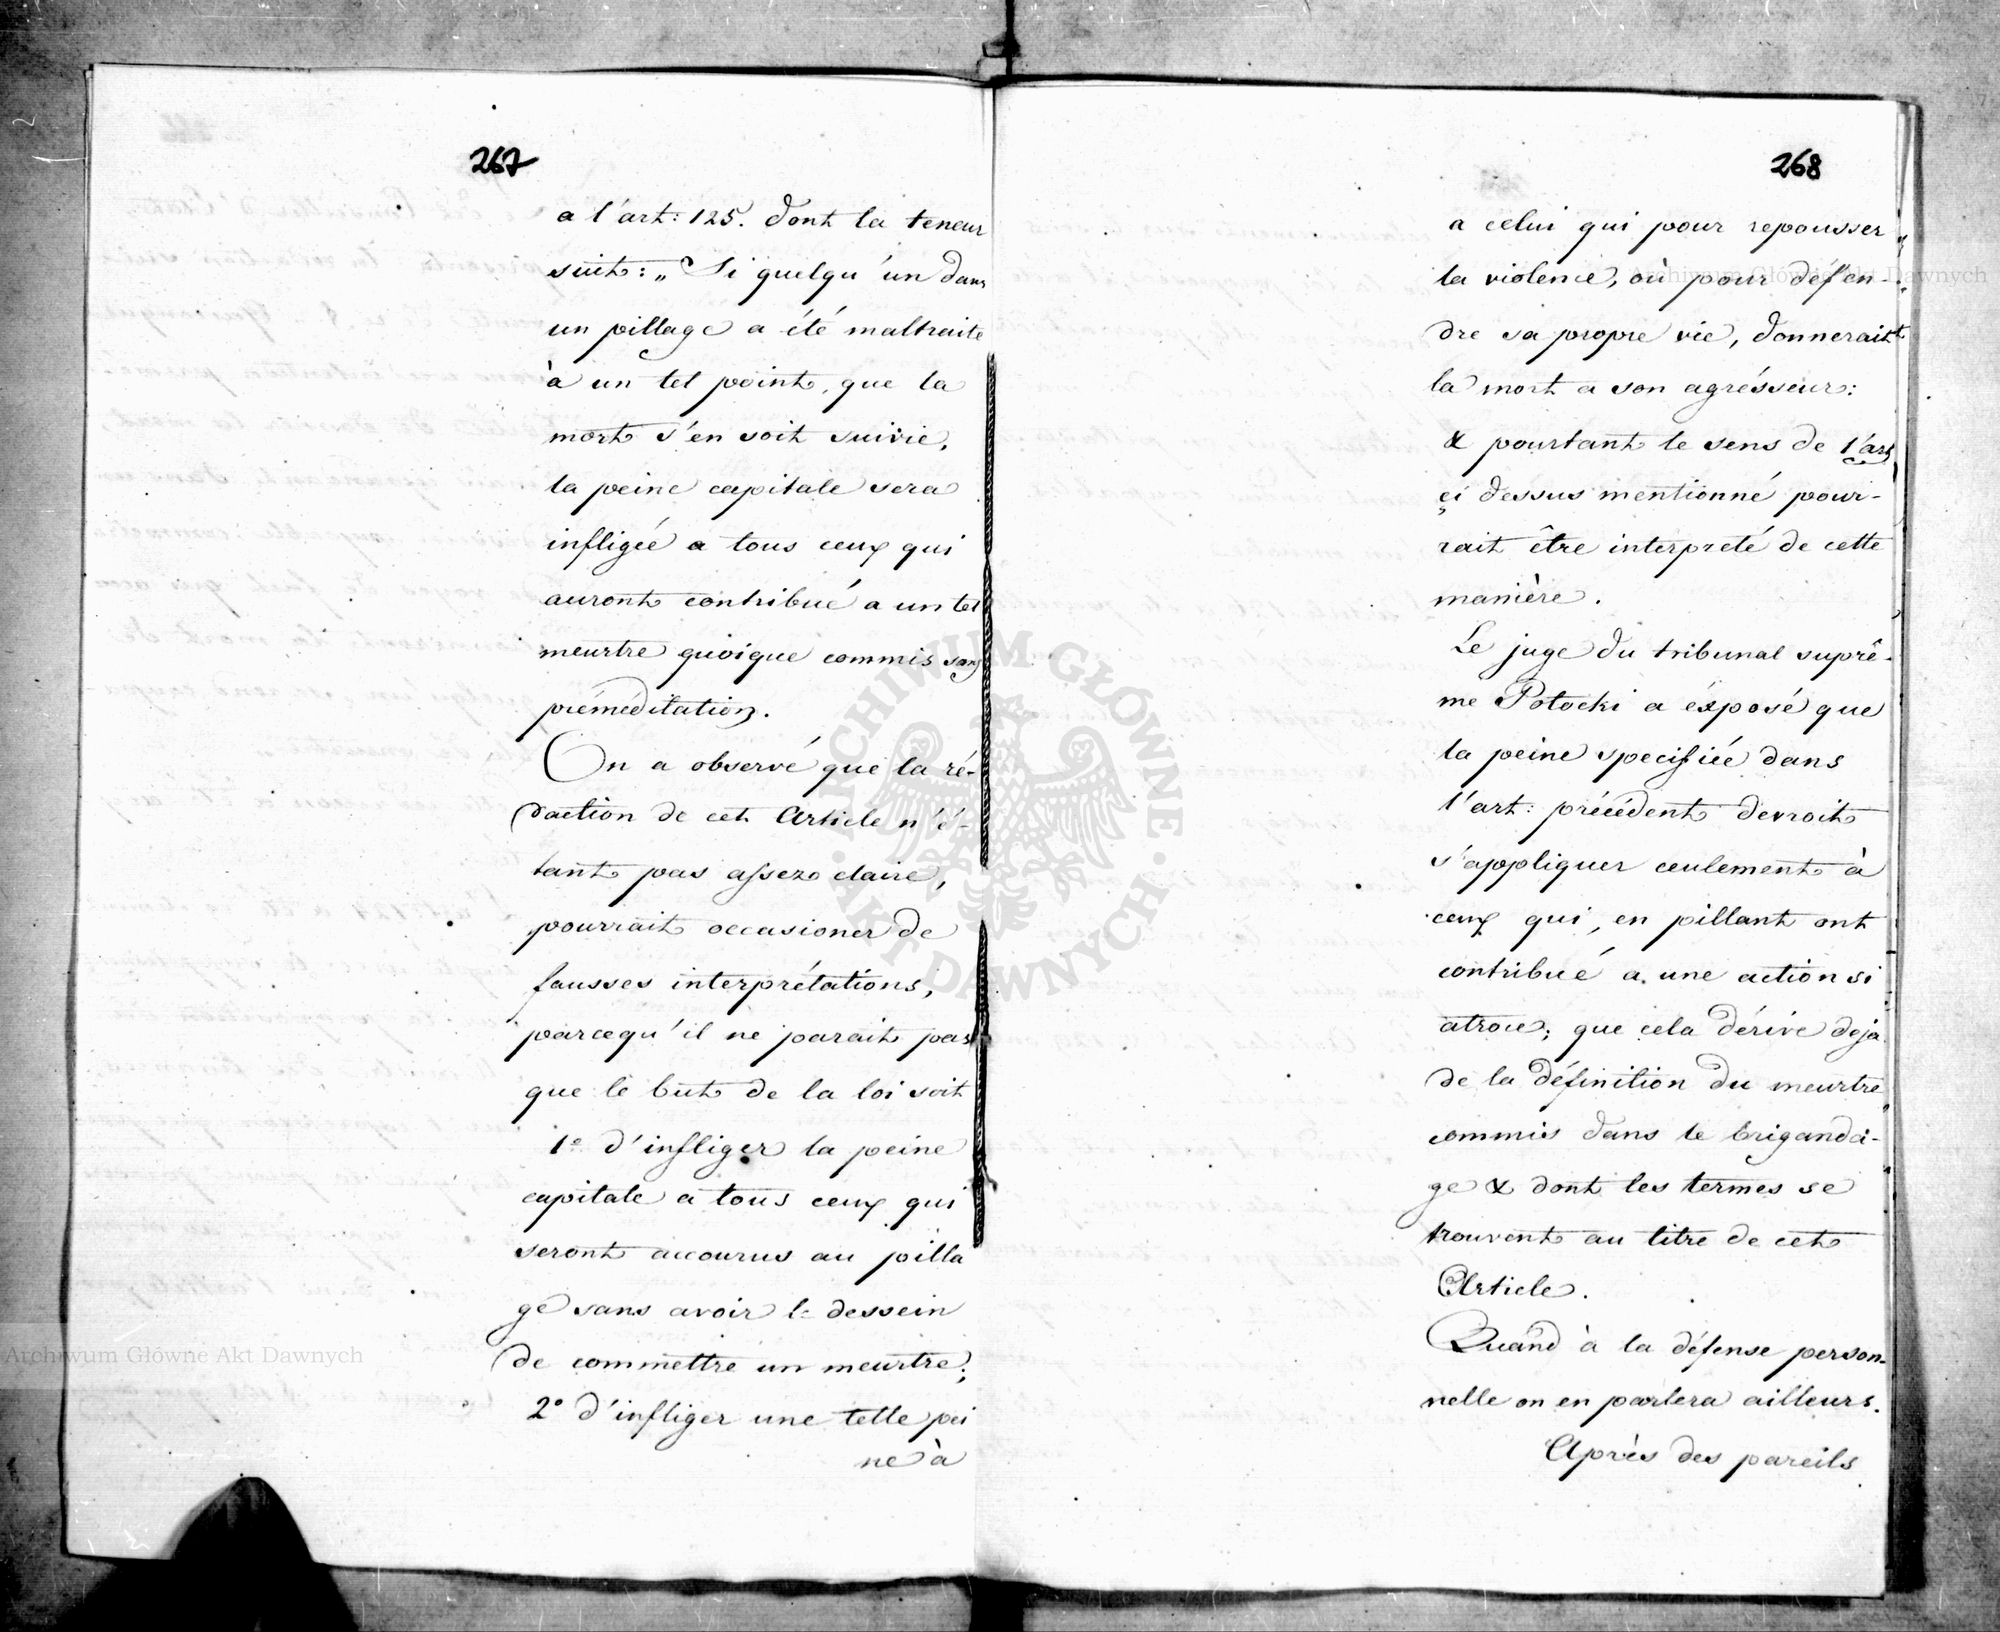 267
a l'art: 125. dont la teneur
suit: „ Si quelqu'un dans
un pillage a été maltraité
à un tel point, que la
mort s'en soit suivie,
la peine capitale sera
infligée a tous ceux qui
auront contribué a un tel
meurtre quoique commis sans
préméditation.
On a observé que la ré-
daction de cet Article n'é-
tant pas assez claire,
pourrait occasioner de
fausses interprétations,
parcequ'il ne parait pas
que le but de la loi soit
1° d'infliger la peine
capitale a tous ceux qui
seront accourus au pilla
ge sans avoir le dessein
de commettre un meurtre;
2° d'infliger une telle pei
ne à
268
a celui qui pour repousser
la violence, où pour défen-
dre sa propre vie, donnerait
la mort a son agrésseur:
& pourtant le sens de l'art
çi dessus mentionné pour-
rait être interpreté de cette
manière.
Le juge du tribunal suprê-
me Potocki a éxposé que
la peine specifiée dans
l'art: précédent devroit
s'appliquer ceulement à
ceux qui, en pillant ont
contribué a une action si
atroce; que cela dérive deja
de la définition du meurtre
commis dans le briganda-
ge & dont les termes se
trouvent au titre de cet
Article.
Quand à la défense person-
nelle on en parlera ailleurs.
Après des pareils
Archiwum Główne Akt Dawnych
Archiwum Główne Akt Dawnych
ARCHIWUM GŁÓWNE
AKT DAWNYCH